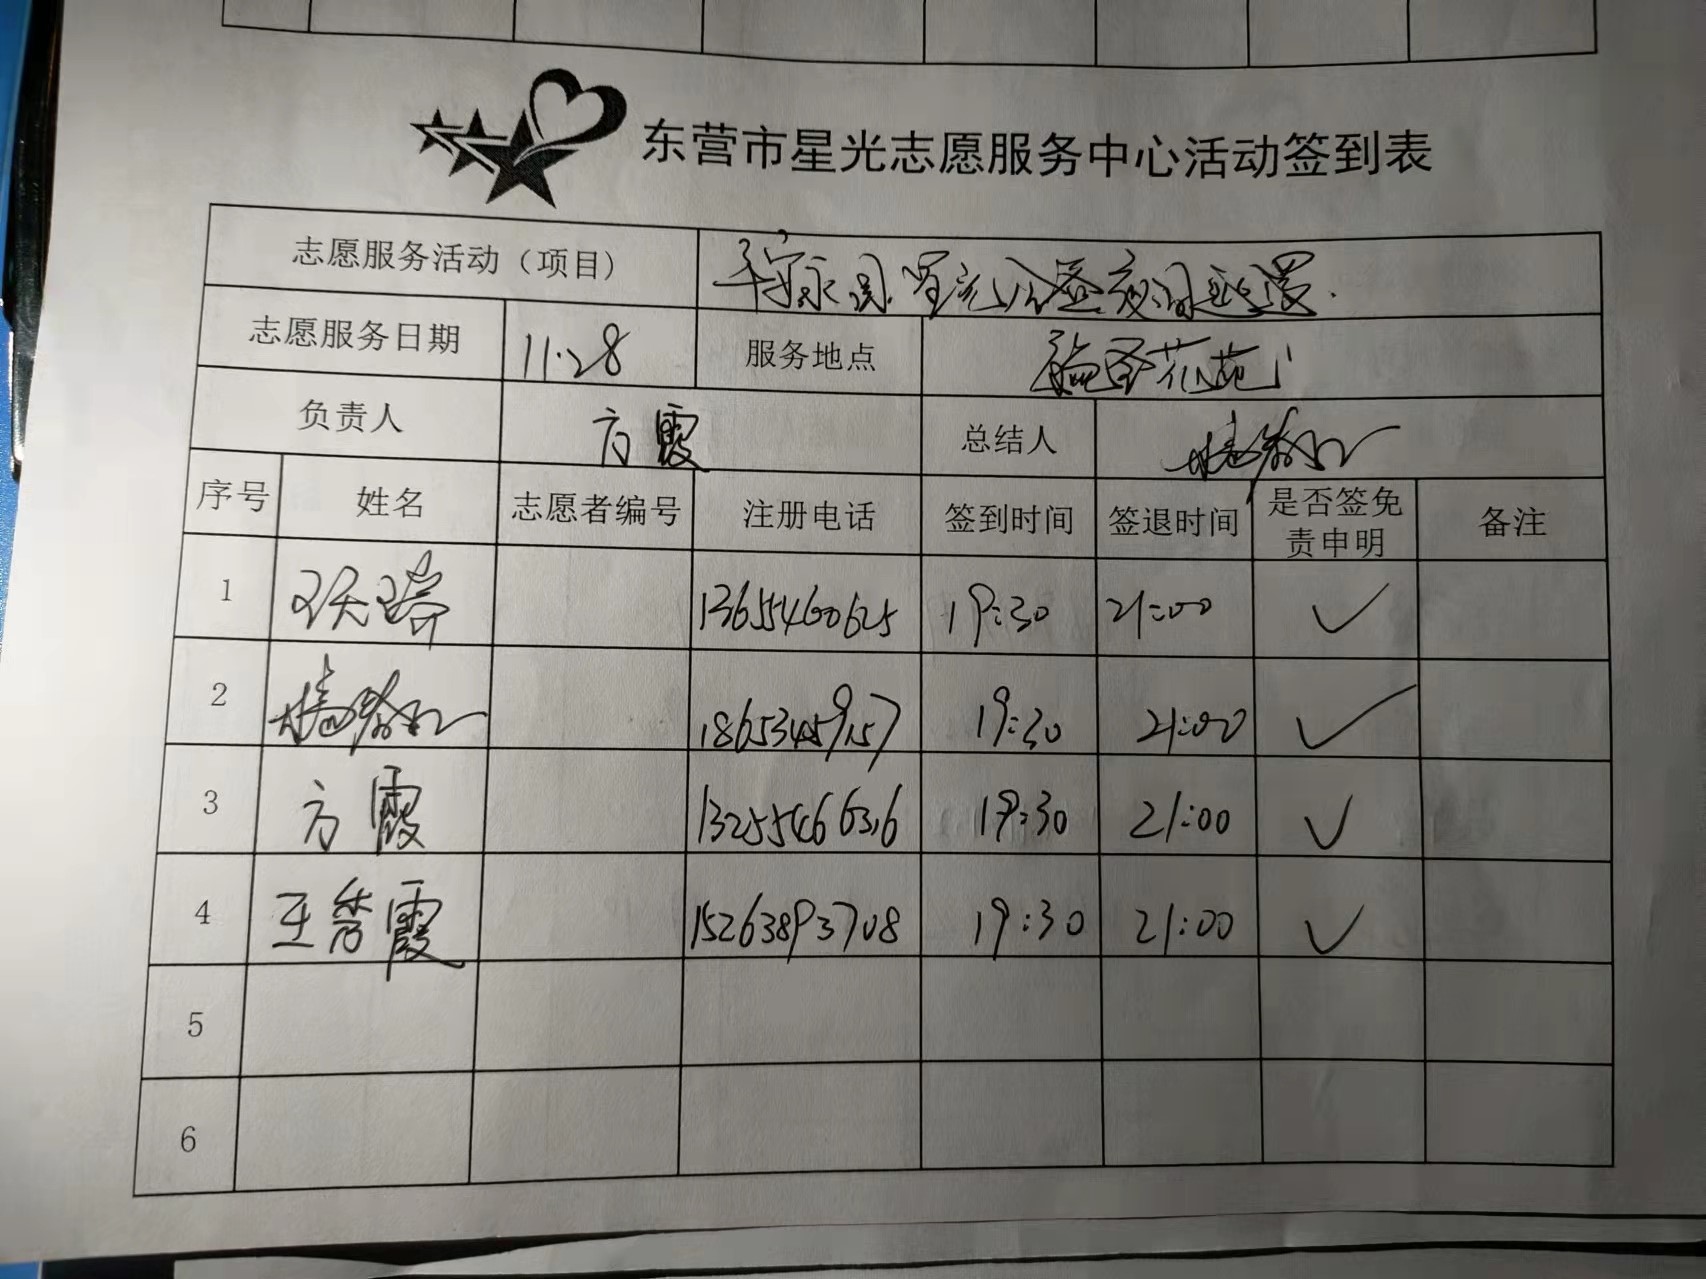 东营市星光志愿服务中心活动签到表
志愿服务活动（项目） 平安永固 星光公益夜间巡逻.
志愿服务日期 11.28 服务地点 花苑
负责人 方霞 总结人
序号 姓名 志愿者编号 注册电话 签到时间 签退时间 是否签免责申明 备注
1 13655460625 19:30 21:00 ✓
2 18653459157 19:30 21:00 ✓
3 方霞 13255466316 19:30 21:00 ✓
4 王秀霞 15263893708 19:30 21:00 ✓
5
6